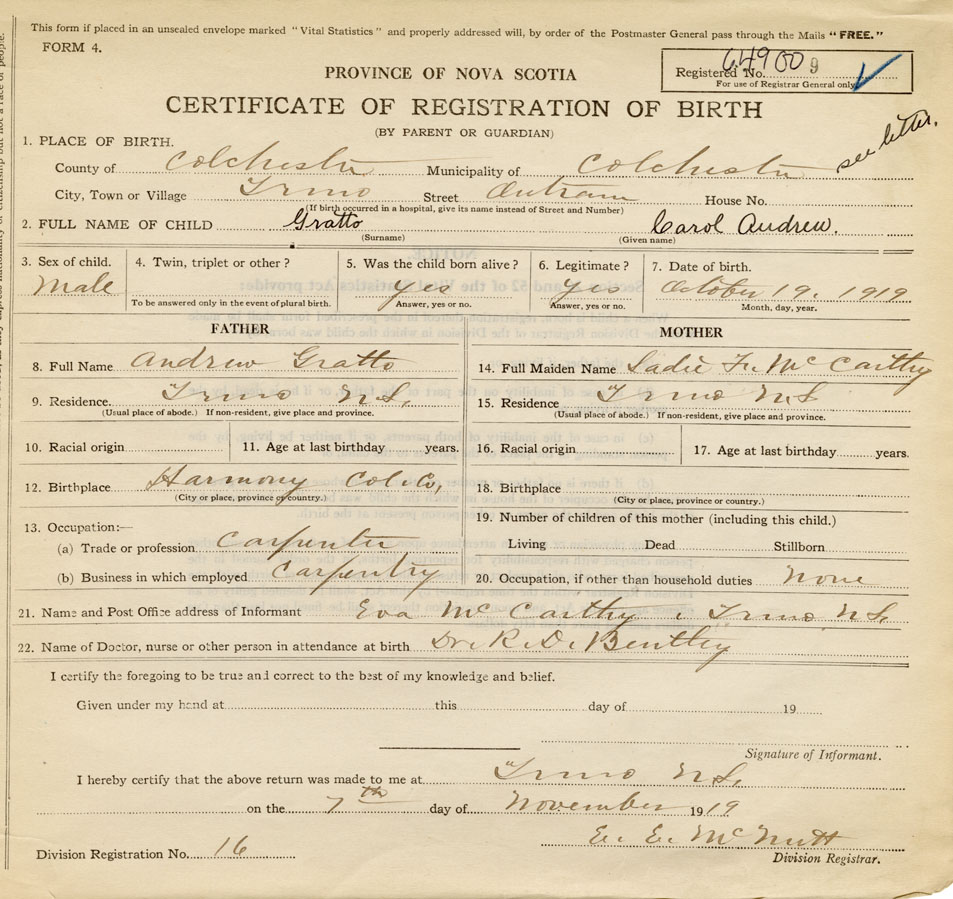 This form if placed in an unsealed envelope marked "Vital Statistics" and properly addressed will, by order of the Postmaster General pass through the Mails "FREE."
FORM 4.
PROVINCE OF NOVA SCOTIA
Registered No. 64900 9
For use of Registrar General only
CERTIFICATE OF REGISTRATION OF BIRTH
(BY PARENT OR GUARDIAN)
see letter.
1. PLACE OF BIRTH.
County of Colchester Municipality of Colchester
City, Town or Village Truro Street Outram House No.
(If birth occurred in a hospital, give its name instead of Street and Number)
2. FULL NAME OF CHILD Gratto Carol Andrew.
(Surname) (Given name)
3. Sex of child. 4. Twin, triplet or other? 5. Was the child born alive? 6. Legitimate? 7. Date of birth.
Male yes yes October 19, 1919
To be answered only in the event of plural birth. Answer, yes or no. Answer, yes or no. Month, day, year.
FATHER MOTHER
8. Full Name Andrew Gratto 14. Full Maiden Name Sadie F. McCarthy
9. Residence. Truro N.S. 15. Residence Truro N.S
(Usual place of abode.) If non-resident, give place and province. (Usual place of abode.) If non-resident, give place and province.
10. Racial origin 11. Age at last birthday years. 16. Racial origin 17. Age at last birthday years.
12. Birthplace Harmony Col. Co, 18. Birthplace
(City or place, province or country.) (City or place, province or country.)
19. Number of children of this mother (including this child.)
13. Occupation:—
(a) Trade or profession Carpenter Living Dead Stillborn
(b) Business in which employed Carpentry 20. Occupation, if other than household duties None
21. Name and Post Office address of Informant Eva McCarthy, Truro N.S.
22. Name of Doctor, nurse or other person in attendance at birth Dr. R. D. Bentley
I certify the foregoing to be true and correct to the best of my knowledge and belief.
Given under my hand at this day of 19
Signature of Informant.
I hereby certify that the above return was made to me at Truro N.S.
on the 7th day of November 1919
E. E. McNutt
Division Registration No. 16 Division Registrar.